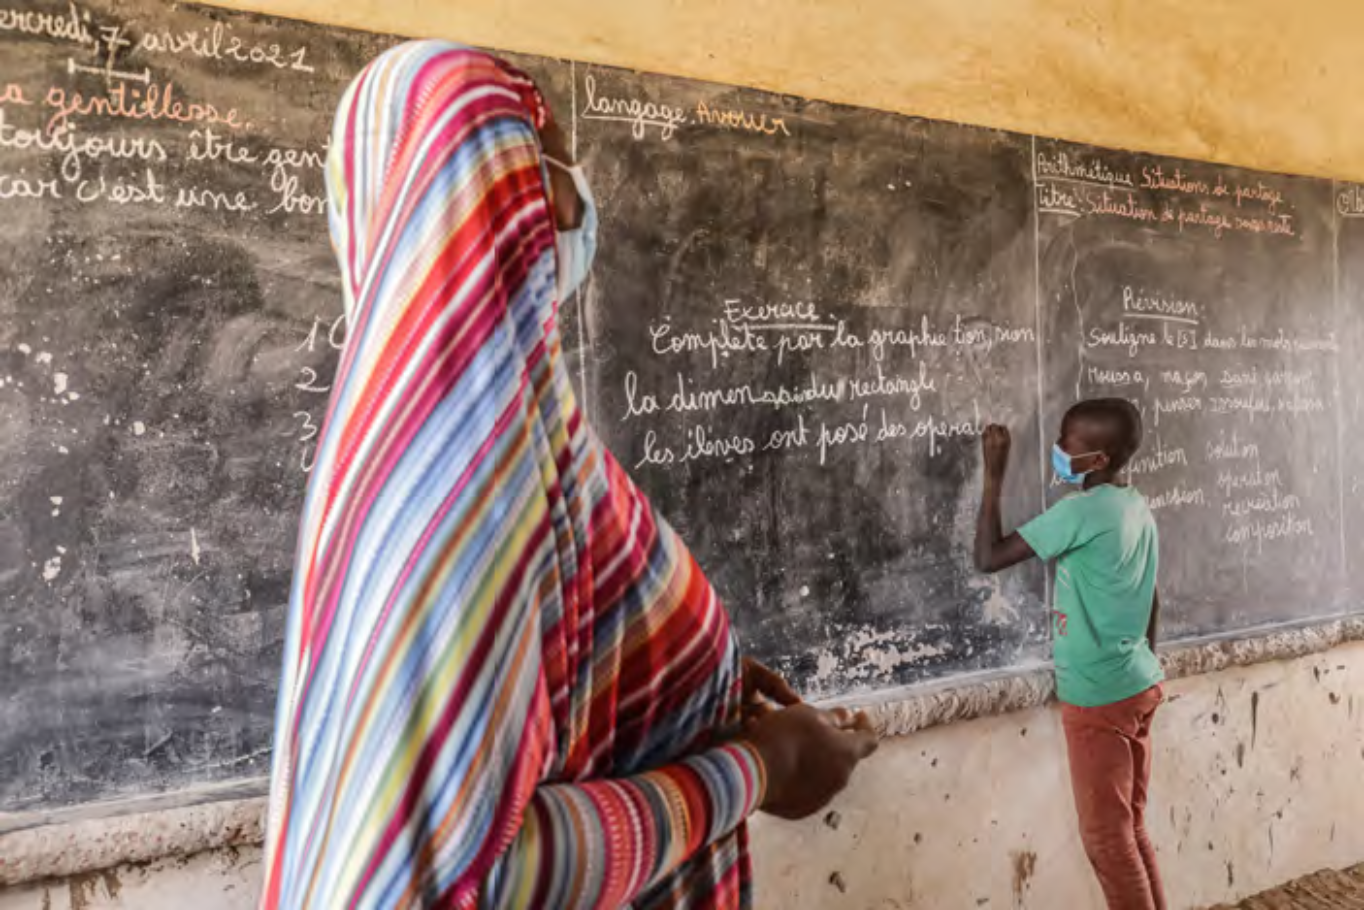 ercredi, 7 avril 2021
a gentillesse.
toujours être gen
car c'est une bon
1
2
3
langage. Avouer
Exercice.
Complète par la graphie tion, sion
la dimen du rectangle
les élèves ont posé des opérat
Arithmétique Situations de partage.
Titre: Situation de partage
Révision:
Souligne le [s] dans les mots suivants
Moussa, maçon,
penser,
inition solution
ension. opération
récréation
composition